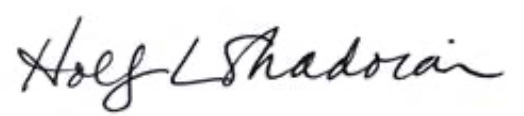 Holly L Shadoian